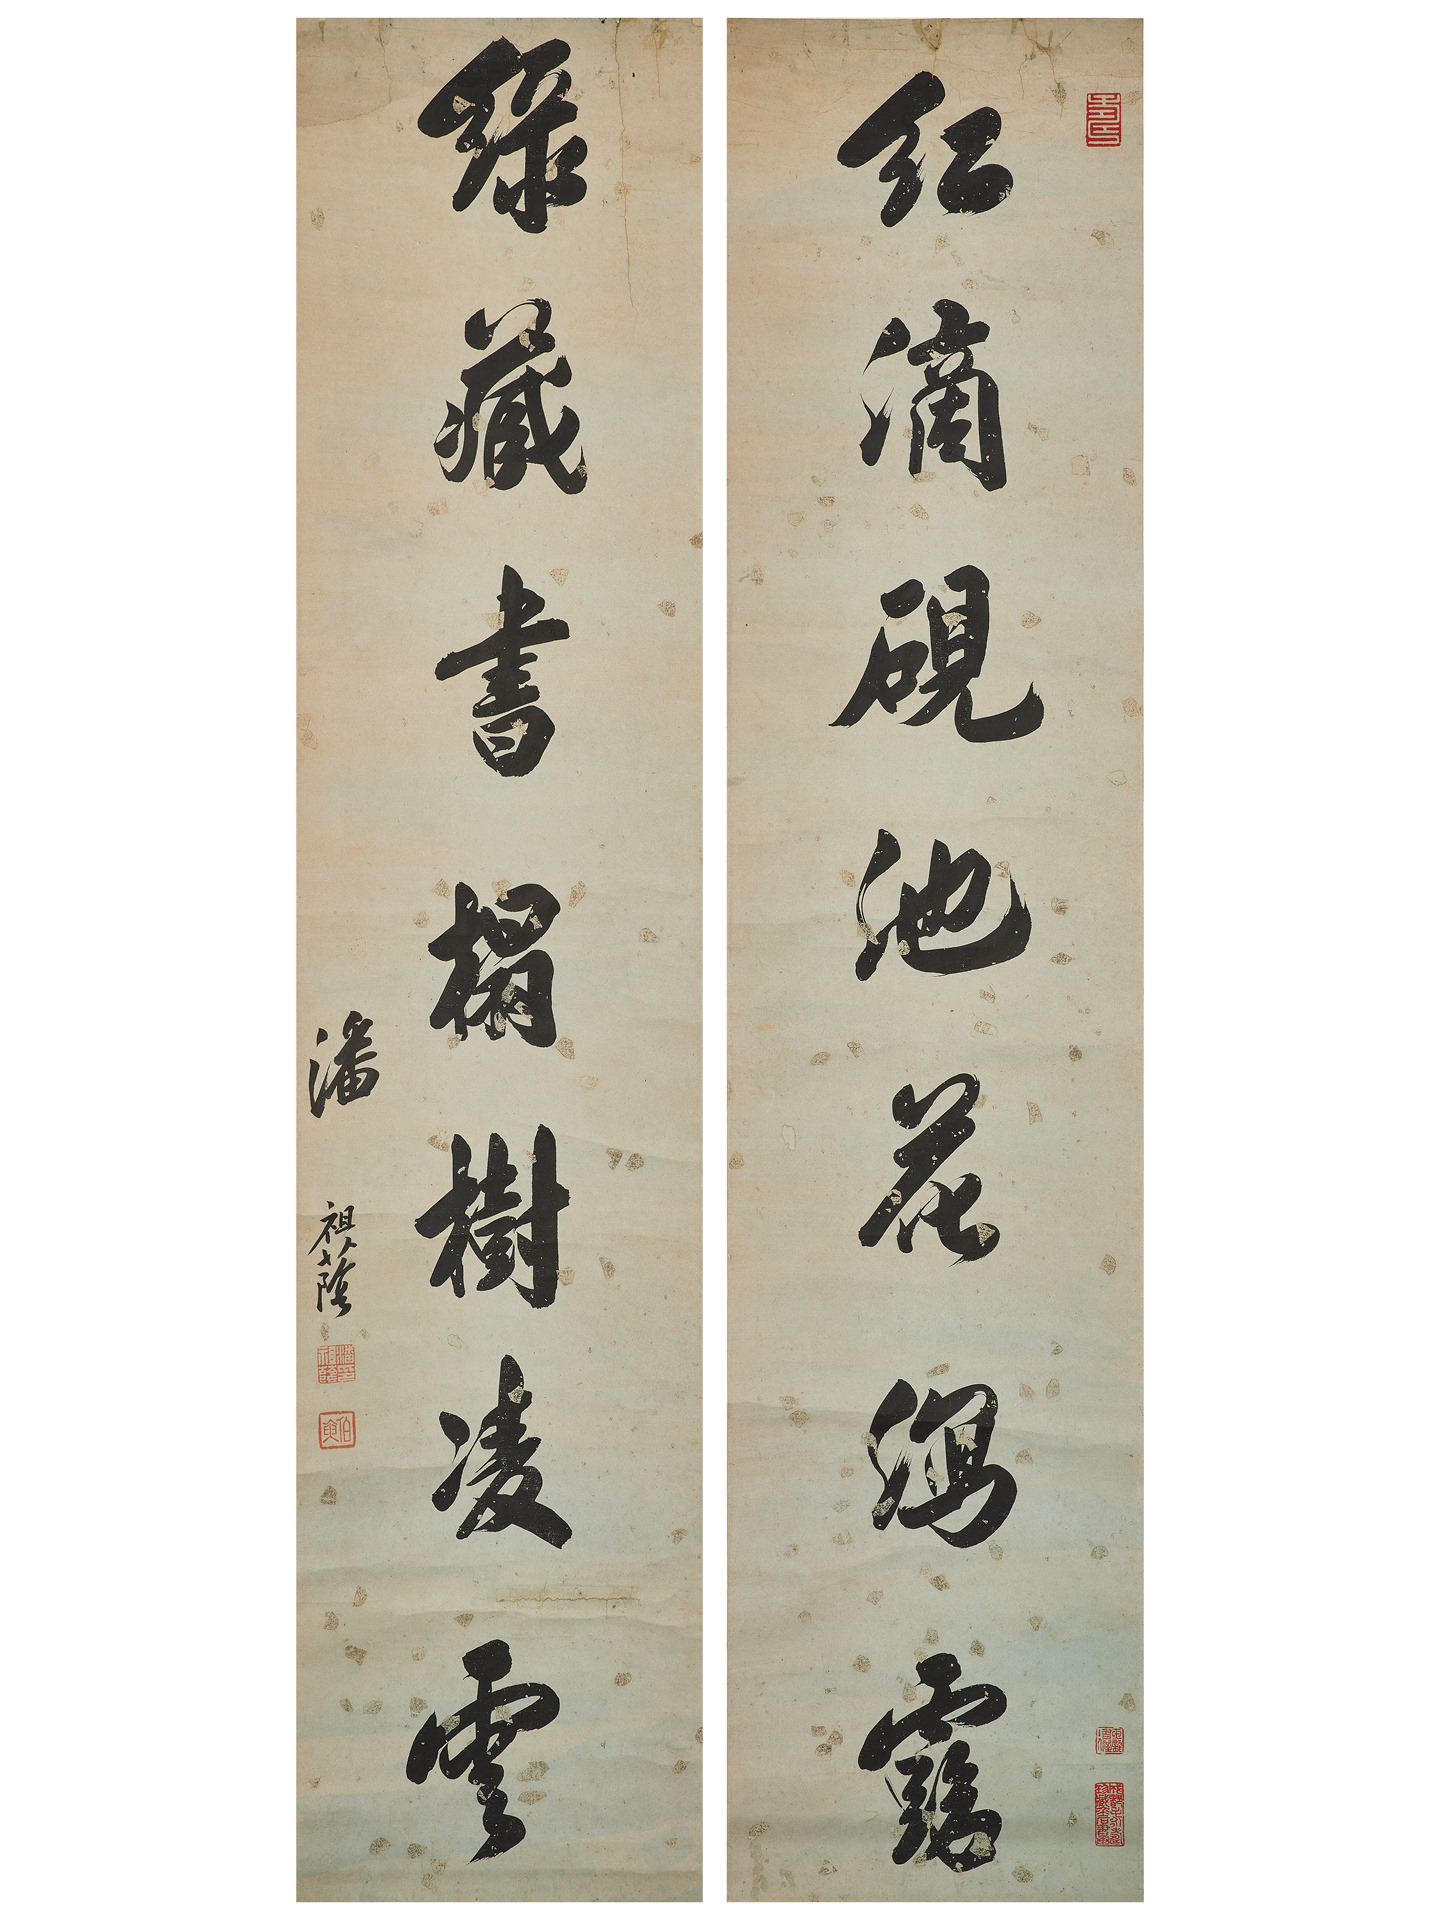 紅滴硯池花瀉露
綠藏書榻樹凌雲
潘祖蔭
潘祖蔭印
伯寅